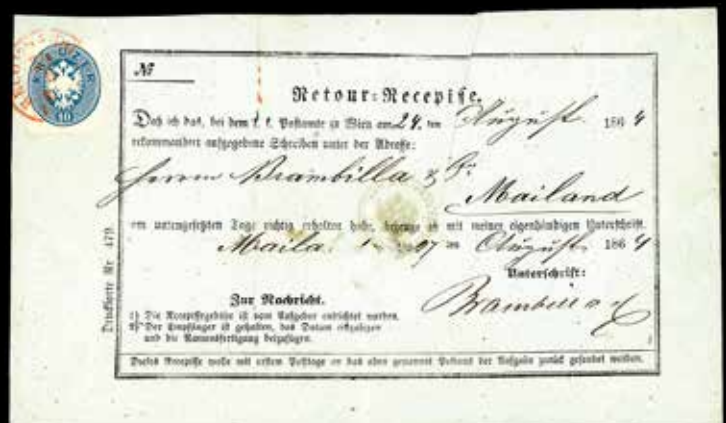 №
Retour-Recepisse.
Daß ich das, bei dem k. k. Postamte zu Wien am 24. ten August 1864
rekommandirt aufgegebene Schreiben unter der Adresse:
Herrn Brambilla &
Mailand
am untengesetzten Tage richtig erhalten habe, bezeuge ich mit meiner eigenhändigen Unterschrift.
Maila 27 August 1864
Unterschrift:
Brambilla
Zur Nachricht.
1) Die Recepissegebühr ist vom Aufgeber entrichtet worden.
2) Der Empfänger ist gehalten, das Datum
und die Namensfertigung beizufügen.
Dieses Recepisse wolle mit erstem Posttage an das oben genannte Postamt der Aufgabe zurück gesendet werden.
Drucksorte Nr. 479.
KREUZER
10